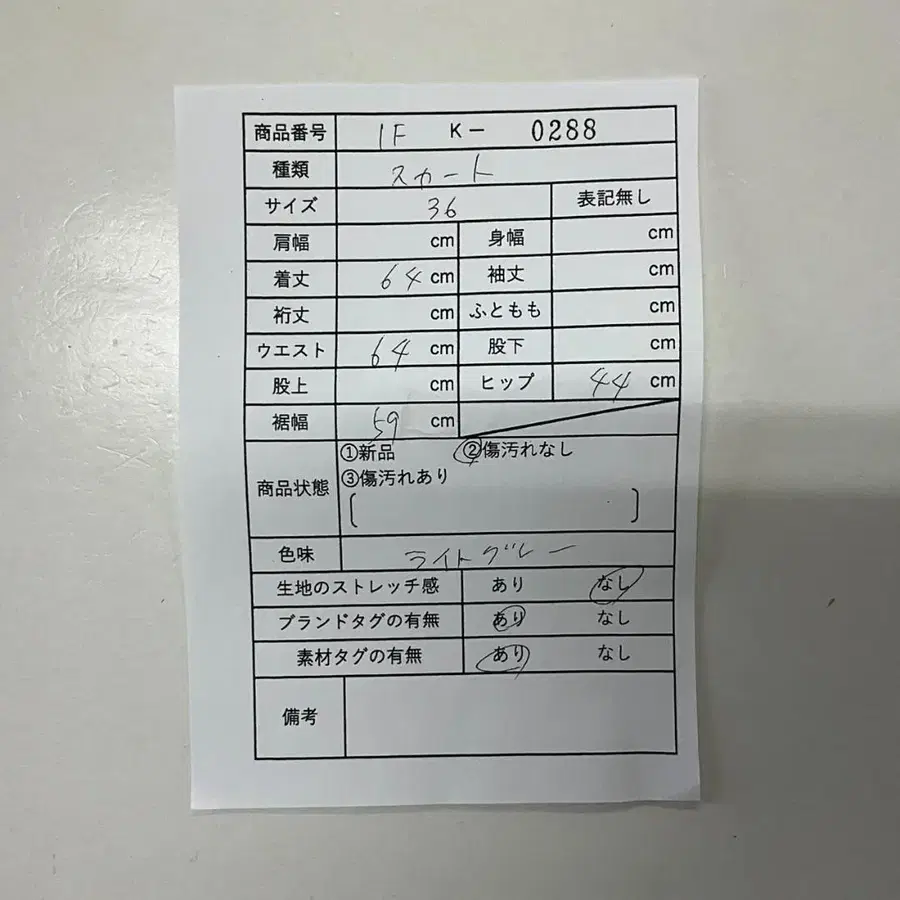 商品番号 1F K- 0288
種類 スカート
サイズ 36 表記無し
肩幅 cm 身幅 cm
着丈 64 cm 袖丈 cm
裄丈 cm ふともも cm
ウエスト 64 cm 股下 cm
股上 cm ヒップ 44 cm
裾幅 59 cm
商品状態 ①新品 ②傷汚れなし
③傷汚れあり
[ ]
色味 ライトグレー
生地のストレッチ感 あり なし
ブランドタグの有無 あり なし
素材タグの有無 あり なし
備考